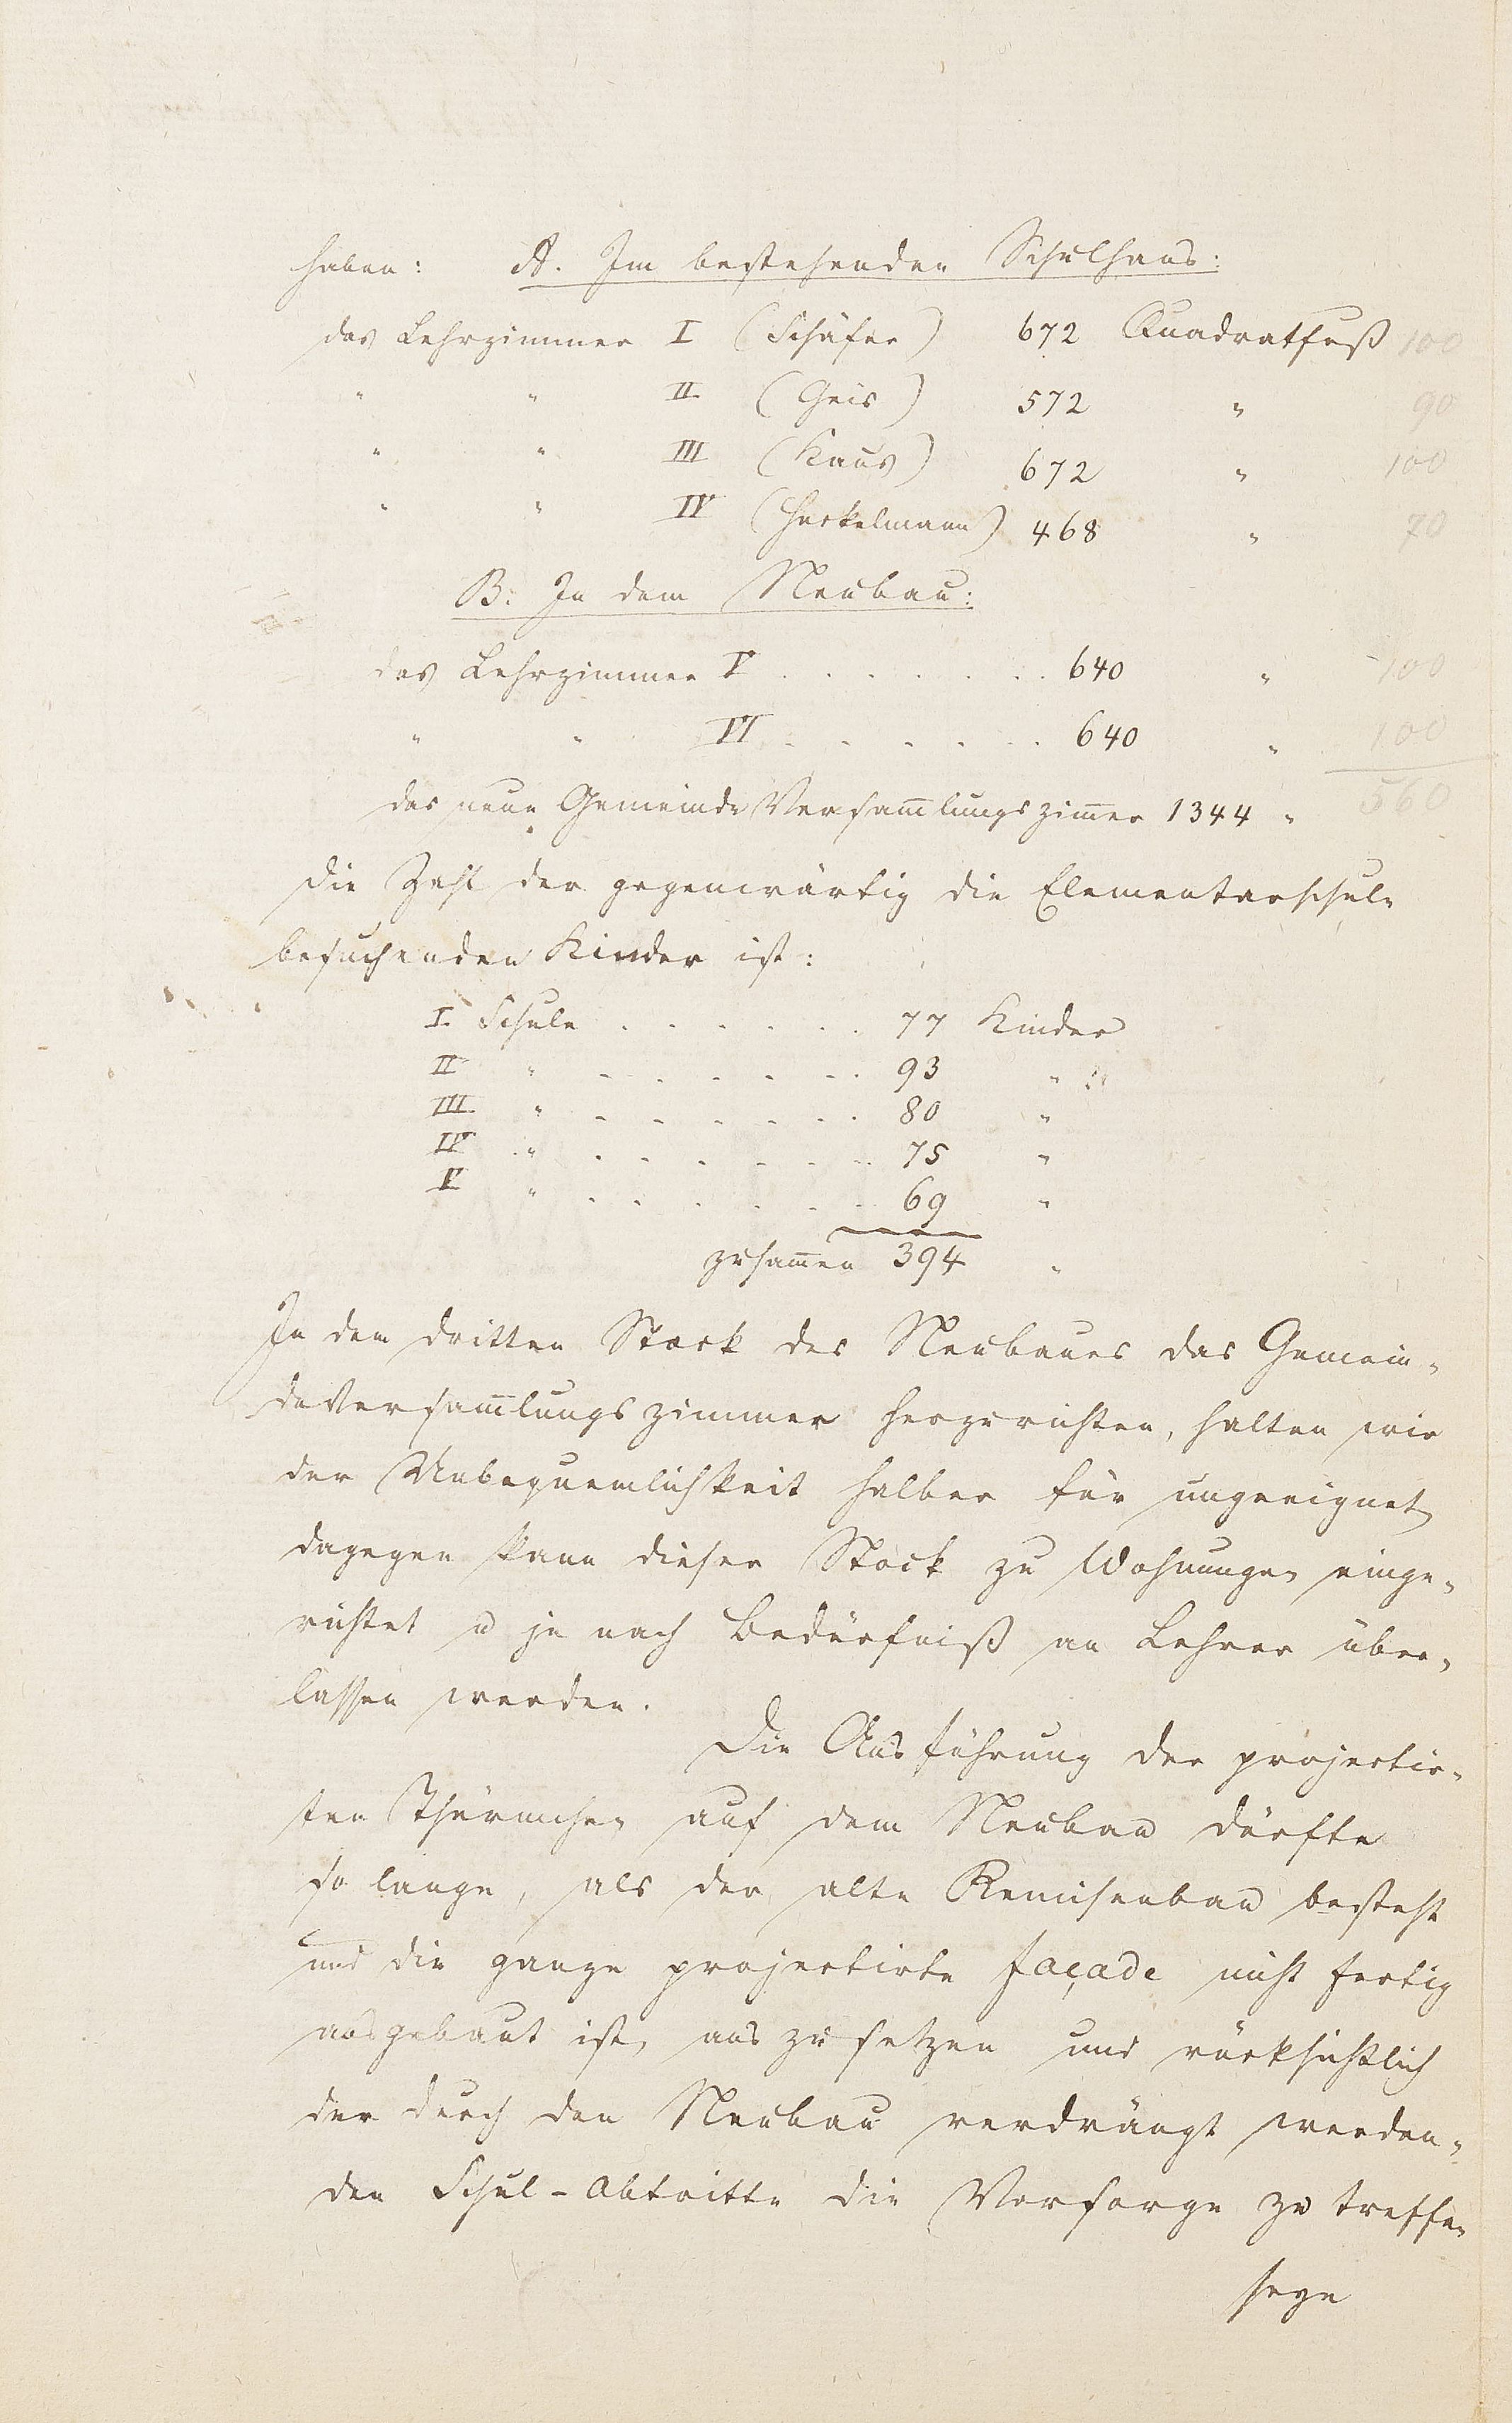 haben: A. Im bestehenden Schulhaus:
das Lehrzimmer I (Schäfer) 672 Quadratfuß 100
" " II (Geis) 572 " 90
" " III (Kaus) 672 " 100
" " IV (Heckelmann) 468 " 70
B: In dem Neubau:
das Lehrzimmer V . . . . . . . 640 " 100
" " VI . . . . . . 640 " 100
das neue Gemeinde Versam̅lungszim̅er 1344 " 560
Die Zahl der gegenwärtig die Elementarschule
besuchenden Kinder ist:
I. Schule . . . . . . 77 Kinder
II " . . . . . . 93 "
III. " . . . . . . 80 "
IV " . . . . . . 75 "
V " . . . . . . 69 "
zusam̅en 394 "
In den dritten Stock des Neubaues das Gemein-
deversam̅lungszimmer herzurichten, halten wir
der Unbequemlichkeit halber für ungeeignet,
dagegen kann dieser Stock zu Wohnungen einge-
richtet u je nach Bedürfniß an Lehrer über-
lassen werden.
Die Ausführung der projectir-
ten Thürmchen auf dem Neubau dürfte
so lange, als der alte Remisenbau besteht
und die ganze projectirte façade nicht fertig
ausgebaut ist, auszusetzen und rücksichtlich
der durch den Neubau verdrängt werden-
den Schul-Abtritte die Vorsorge zu treffen
seyn